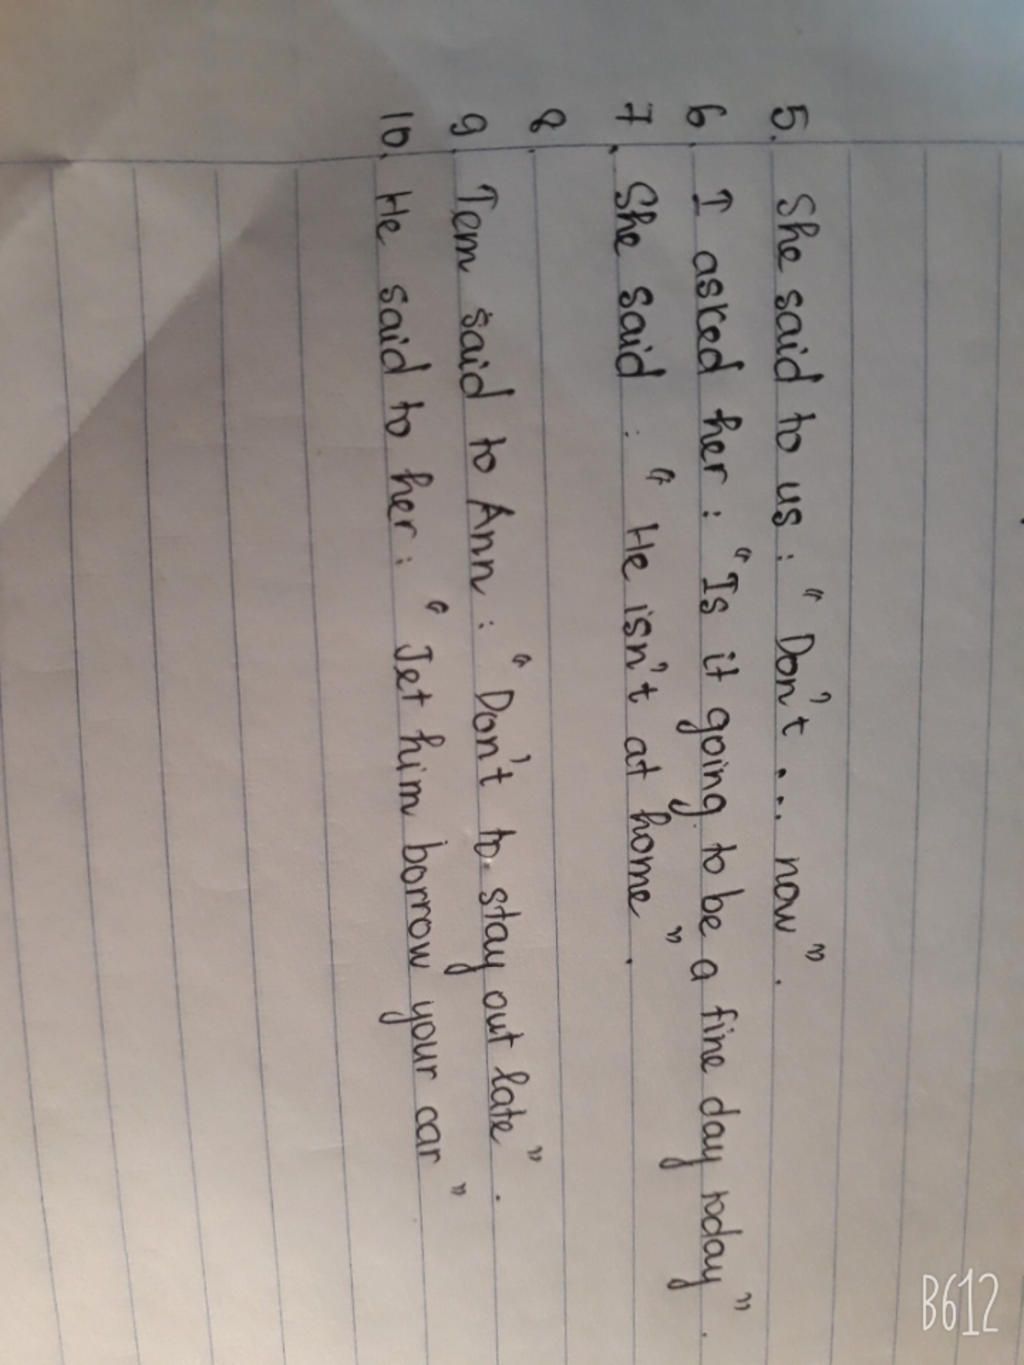 5. She said to us : " Don't ... now ".
6. I asked her : " Is it going to be a fine day today ".
7. She said : " He isn't at home ".
8.
9. Tem said to Ann : " Don't to stay out late ".
10. He said to her : " Jet him borrow your car "
B612